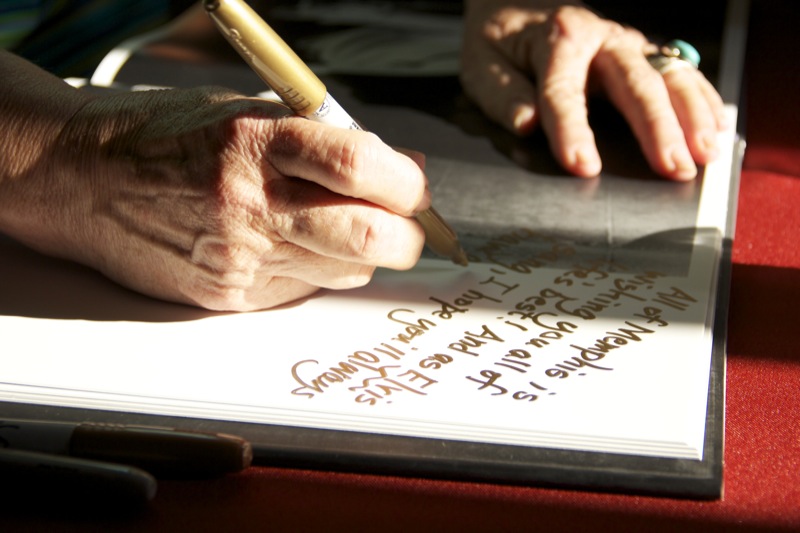 All of Memphis is
wishing you all of
best! And as Elvis
sang, I hope you'll always